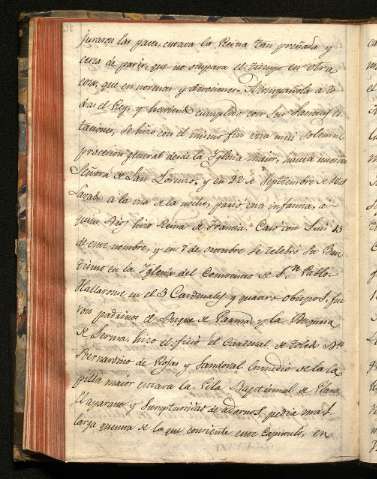 juraron las paces, estava la Reina tan preñada y
cerca de parir, que no ocupava el tiempo en otra
cosa, que en novenas y devociones. Acompañola a to
das el Rey, y haviendo cumplido con sus
taciones, se hizo con el mismo fin una mui solemne
procession general desde la Iglesia Maior, hasta nuestra
Señora de San Lorenzo, y en 22 de Septiembre de 1601
a la una de la noche, parió una infanta, a
quien Dios hizo Reina de Francia. Casó con Luis 13
de este nombre, y en 7 de octubre se celebró su Bau
tismo en la Iglesia del Convento de S.n Pablo
Hallaronse en el 3 Cardenales y quatro obispos, fue
ron padrinos el Duque de Parma y la Duquesa
de Lerma: hizo el oficio el Cardenal de Toledo D.n
Bernardino de Rojas y Sandoval. En medio de la Ca
pilla maior estava la Pila Baptismal de
y sumptuosidad de adornos, pedia mas
larga que de lo que consiente este Capitulo, en